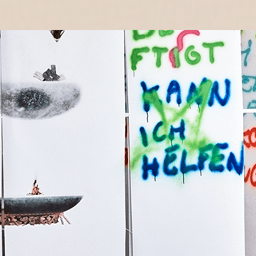 FTIGT
KANN
ICH
HELFEN